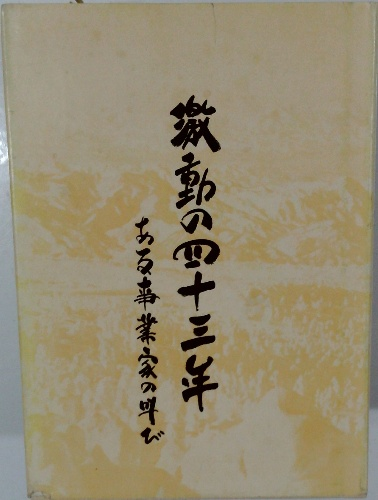 激動の四十三年
ある事業家の叫び